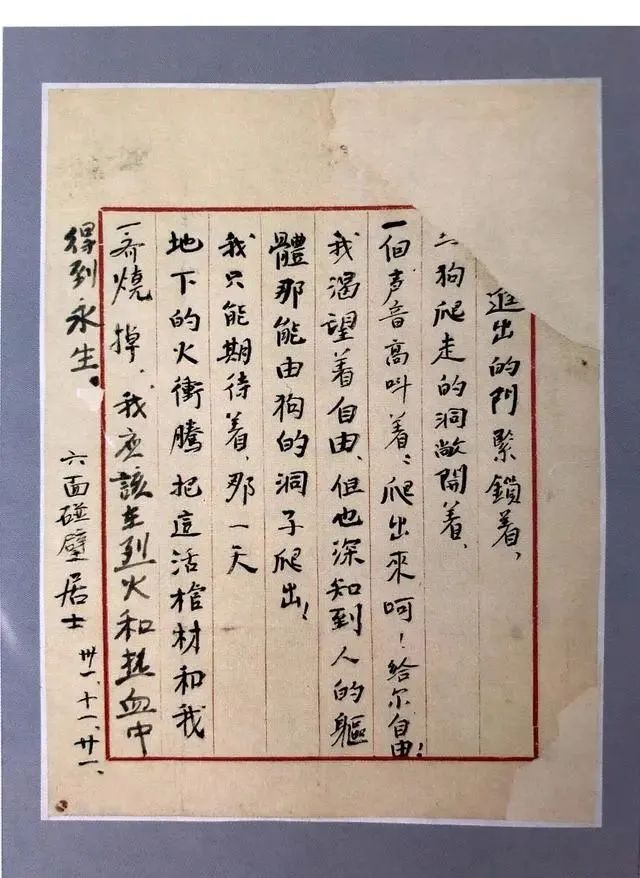 進出的門緊鎖着、
狗爬走的洞敞開着、
一個声音高叫着：爬出來呵！給尔自由！
我渴望着自由、但也深知到人的軀
體那能由狗的洞子爬出！
我只能期待着、那一天
地下的火衝騰把這活棺材和我
一齐燒掉、我应該在烈火和热血中
得到永生。
六面碰壁居士
卅一、十一、廿一、